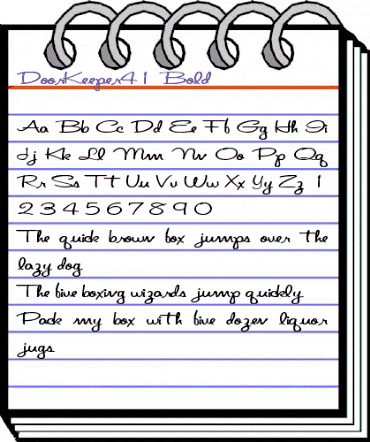 DoorKeeper41 Bold
Aa Bb Cc Dd Ee Ff Gg Hh Ii
Jj Kk Ll Mm Nn Oo Pp Qq
Rr Ss Tt Uu Vv Ww Xx Yy Zz 1
2 3 4 5 6 7 8 9 0
The quick brown fox jumps over the
lazy dog
The five boxing wizards jump quickly
Pack my box with five dozen liquor
jugs